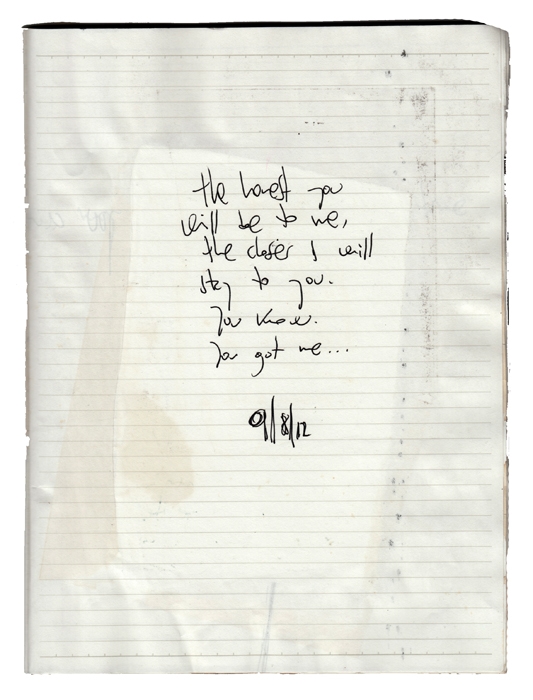 the honest you
will be to me,
the closer I will
stay to you.
You know.
You got me...
9/8/12